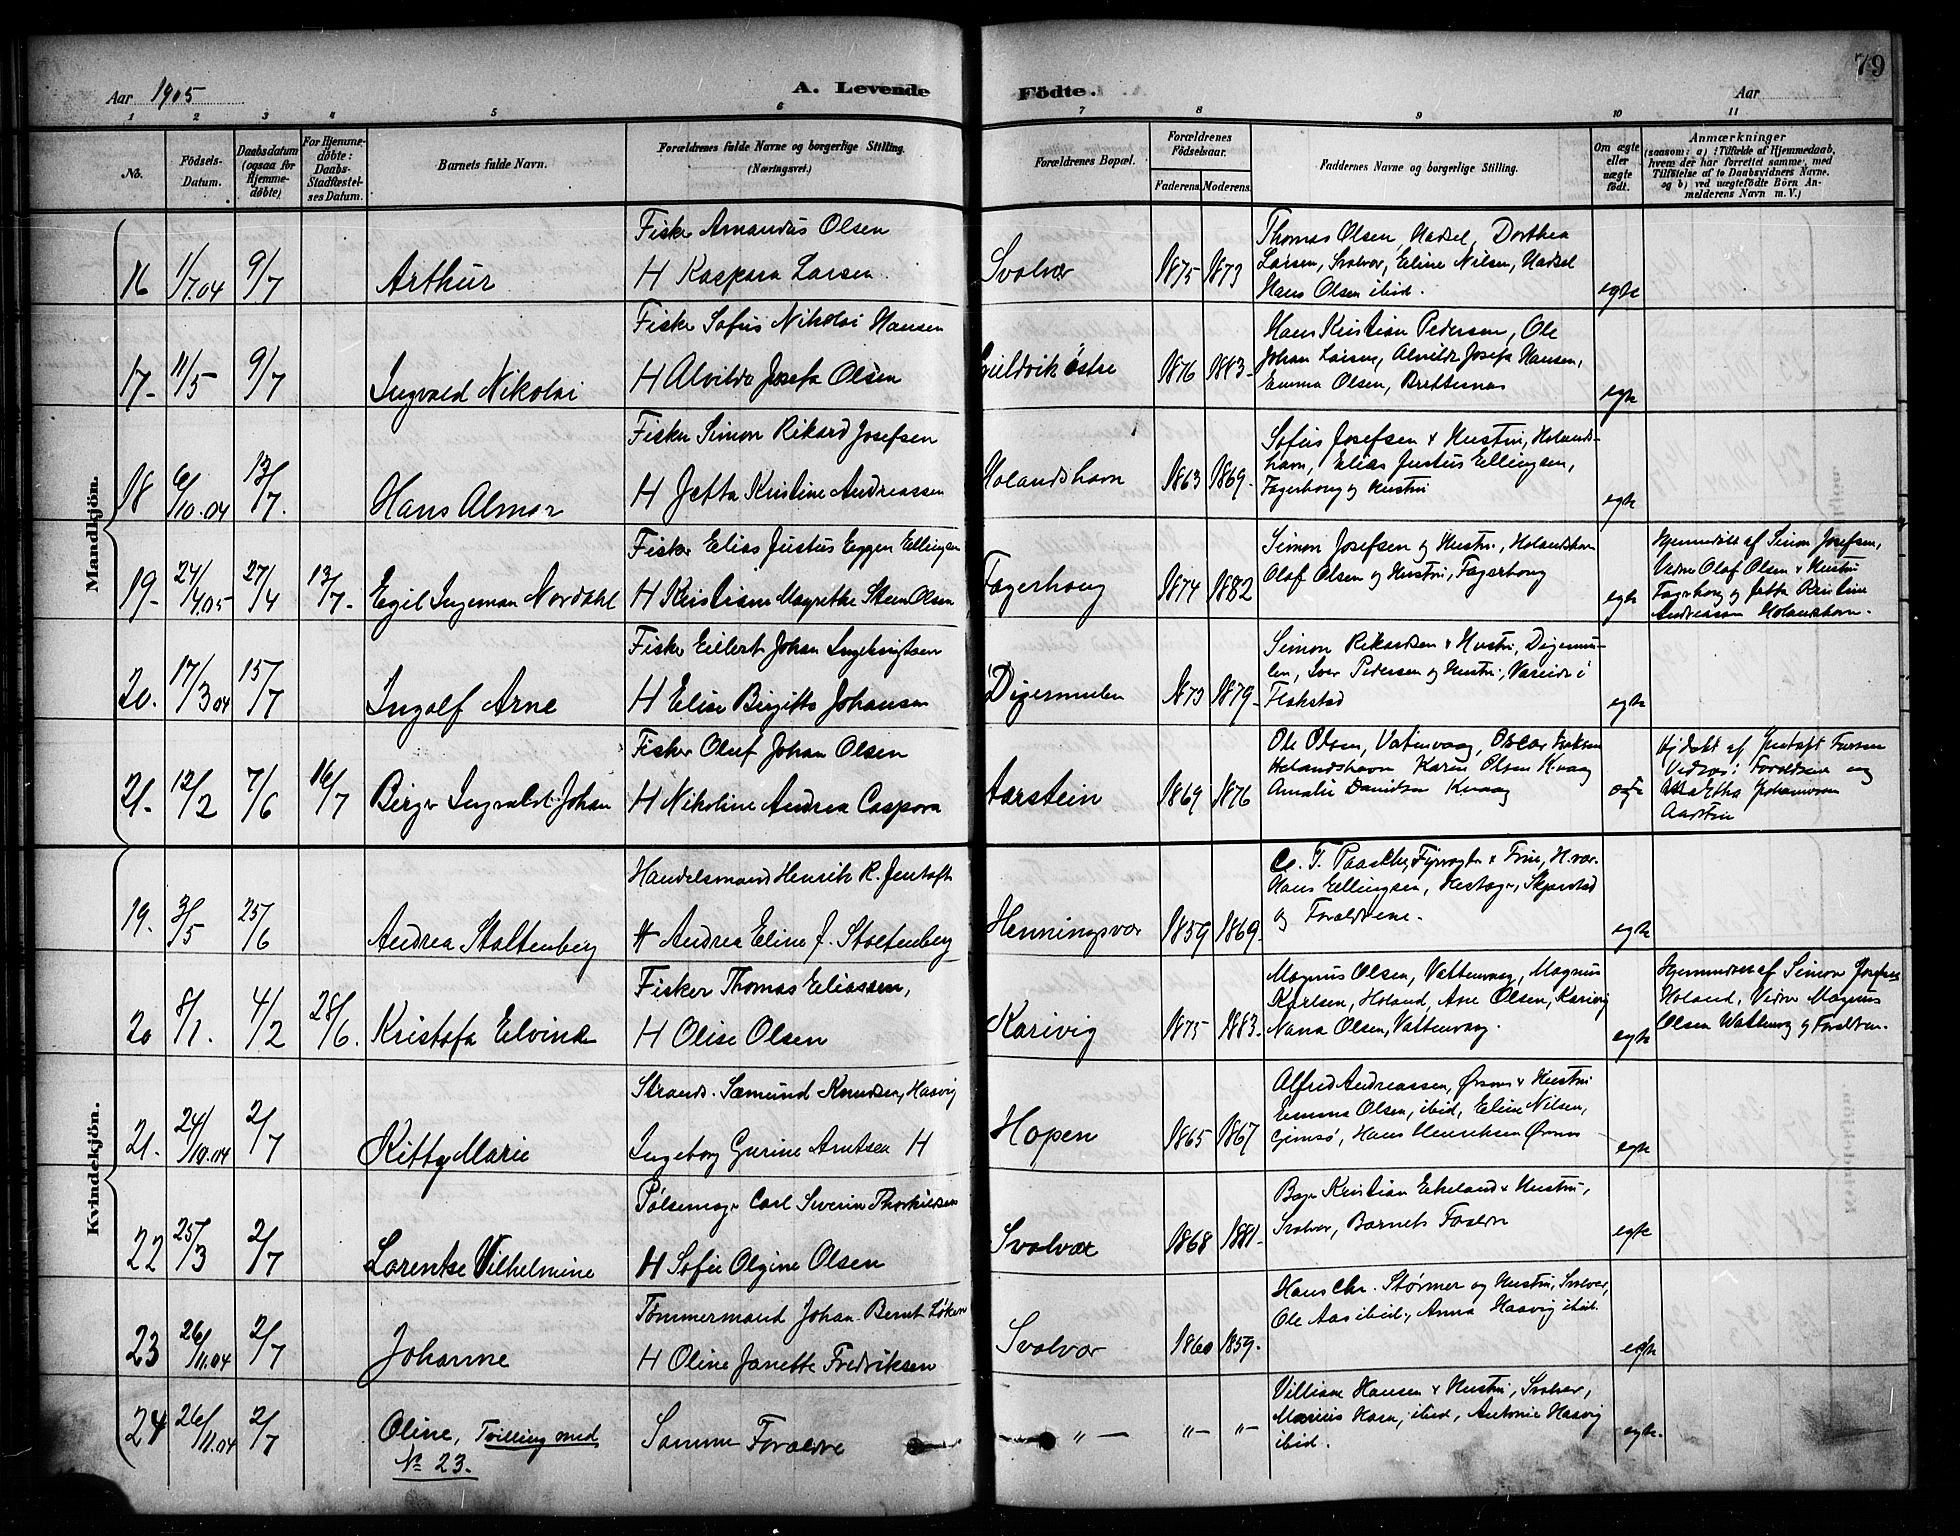 79
Aar 1905
A. Levende Födte.
Aar
1 2 3 4 5 6 7 8 9 10 11
No.
Födsels-Datum.
Daabsdatum (ogsaa for Hjemme-döbte)
For Hjemme-döbte: Daabs-Stadfæstel-ses Datum.
Barnets fulde Navn.
Forældrenes fulde Navne og borgerlige Stilling.
(Næringsvei.)
Forældrenes Bopæl.
Forældrenes Födselsaar.
Faderens. Moderens.
Faddernes Navne og borgerlige Stilling.
Om ægte eller uægte födt.
Anmærkninger
(saasom: a) i Tilfælde af Hjemmedaab,
hvem der har forrettet samme, med
Tilföielse af to Daabsvidners Navne.
og b) ved uægtefödte Börn An-
melderens Navn m. V.)
Mandkjön.
16 1/7.04 9/7 Arthur
Fisker Amandus Olsen
H Kaspara Larsen
Svolvær 1875 1873
Thomas Olsen, Hadsel, Dorthea
Larsen, Svolvær, Eline Nilsen, Hadsel
Hans Olsen ibid.
egte
17- 11/5 9/7 Ingvald Nikolai
Fisker Sofus Nikolai Hansen
H Alvilde Josefa Olsen
østre 1876 1883-
Hans Kristian Pedersen, Ole
Johan Larsen, Alvilde Josefa Hansen,
Emma Olsen, Brettesnes
egte
18 6/10.04 13/7. Hans Almar
Fisker Simon Rikard Josefsen
H Jetta Kristine Andreassen
Holandshavn 1863 1869-
Sofus Josefsen & Hustru, Holands-
havn, Elias Justus Ellingsen,
Fagerhaug og Hustru
egte
19- 24/4.05 27/4 13/7- Egil Ingeman Nordahl
Fisker Elias Justus Eggen Ellingsen
H Kristiane Magrethe Steen Olsen
Fagerhaug 1874 1882
Simon Josefsen og Hustru, Holandshavn
Olaf Olsen og Hustru, Fagerhaug
egte
Hjemmedøbt af Simon Josefsen,
Vidne Olaf Olsen & Hustru
Fagerhaug og Jetta Kristine
Andreassen Holandshavn.
20. 17/3 04 15/7 Ingolf Arne
Fisker Eilert Johan Ingebrigtsen
H Elise Birgitte Johansen
Digermulen 1873 1879-
Simon Rikardsen & Hustru, Digermu-
len, Iver Pedersen og Hustru, i
Flakstad
egte
21. 12/2 7/6 16/7 Birger Ingvald Johan
Fisker Oluf Johan Olsen
H Nikoline Andrea Caspara
Aarstein 1869 1876
Ole Olsen, Vatenvaag, Oscar
Holandshavn Karen Olsen Kvaag
Amalie Davidsen Kvaag
Hjdøbt af Jentoft
Vidner: Forældrene og
Johannesen
Aarstein
Kvindekjön.
19. 3/5 25/6 Andrea Stoltenberg
Handelsmand Henrik R. Jentoft
H Andrea Eline f. Stoltenberg
Henningsvær 1859 1869-
Paasche, Fyrvogter & Frue, H.vær.
Hans Ellingsen, Skjerstad
og Forældrene.
egte
20 8/1. 4/2 28/6. Kristofa Elvinde
Fisker Thomas Eliassen,
H Olise Olsen
Karivig 1875 1883-
Magnus Olsen, Vattenvaag, Magnus
Karlsen, Holand, Ane Olsen, Karivig
Nana Olsen, Vattenvaag.
egte
Hjemmedøbt af Simon Josefsen
Holand, Vidne Magnus
Olsen Vattenvag og Forældrene.
21. 24/10.04 2/7 Kitty Marie
Strands. Sæmund Knudsen, Haavig
Ingeborg Gurine Arntsen H
Hopen 1865 1867
Alfred Andreassen, Ørsnes & Hustru
Emma Olsen, ibid, Eline Nilsen,
Gimsø, Hans Henriksen Ørsnes
egte
22 25/3 2/7 Lorentse Vilhelmine
Pølsemager Carl Severin Thorkildsen
H Sofie Olgine Olsen
Svolvær 1868 1881-
Bager Kristian Ekeland & Hustru,
Svolvær, Barnets Forældre
egte
23 26/11.04 2/7 Johanne
Tømmermand Johan Bernt Løken
H Oline Janette Fredriksen
Svolvær 1860 1859.
Hans Chr. Størmer og Hustru, Svolvær,
Ole Aas ibid., Anna Haavig ibid.
egte
24 26/11.04 2/7 Oline, Tvilling med
No 23.
Samme Forældre
„ — „— „—
Villiam Hansen & Hustru, Svolvær,
Marius Horn, ibid, Antonie Haavig
ibid.
egte.